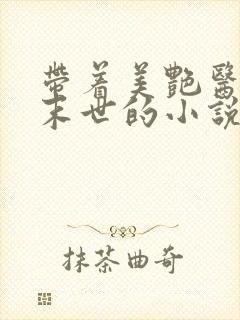 帶着美艷醫
末世的小說
抹茶曲奇